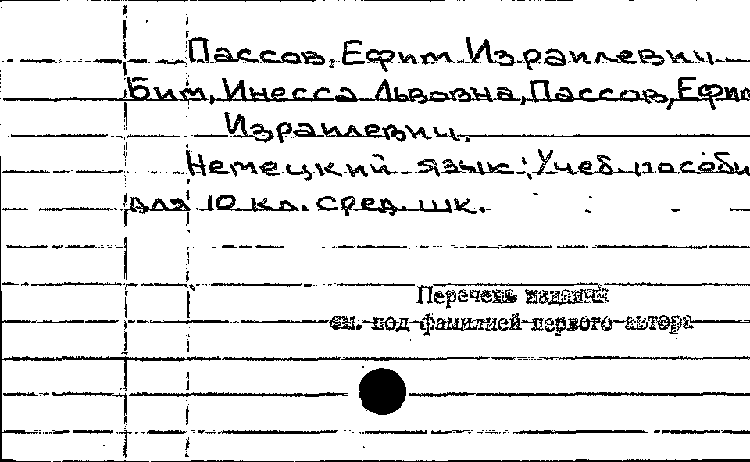 Пассов, Ефим Израилевич
Бим, Инесса Львовна, Пассов, Ефим
Израилевич.
Немецкий язык: Учеб. пособи
для 10 кл. сред. шк.
Перечень изданий
см. под фамилией первого автора